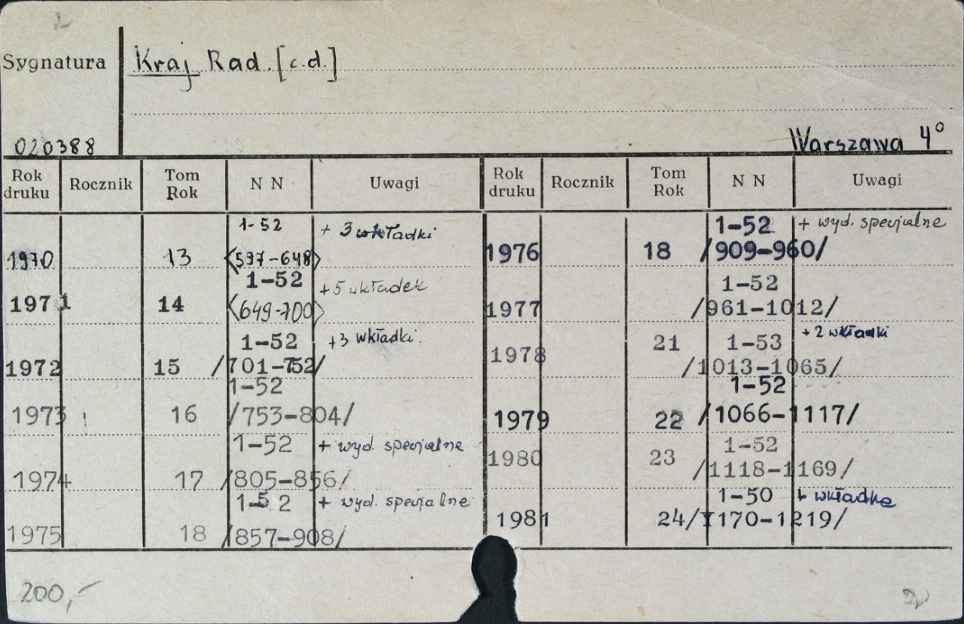 Sygnatura
Kraj Rad. [c.d.]
020388
Warszawa 4°
Rok druku Rocznik Tom Rok N N Uwagi Rok druku Rocznik Tom Rok N N Uwagi
1970 13 1-52 <597-648> + 3 wkładki
1971 14 1-52 <649-700> +5 wkładek
1972 15 1-52 /701-752/ +3 wkładki.
1973 16 1-52 /753-804/
1974 17 1-52 /805-856/ + wyd. specjalne
1975 18 1-52 /857-908/ + wyd. specjalne
1976 18 1-52 /909-960/ + wyd. specjalne
1977 1-52 /961-1012/
1978 21 1-53 /1013-1065/ +2 wkładki
1979 22 1-52 /1066-1117/
1980 23 1-52 /1118-1169/
1981 24 1-50 /1170-1219/ + wkładka
200,-